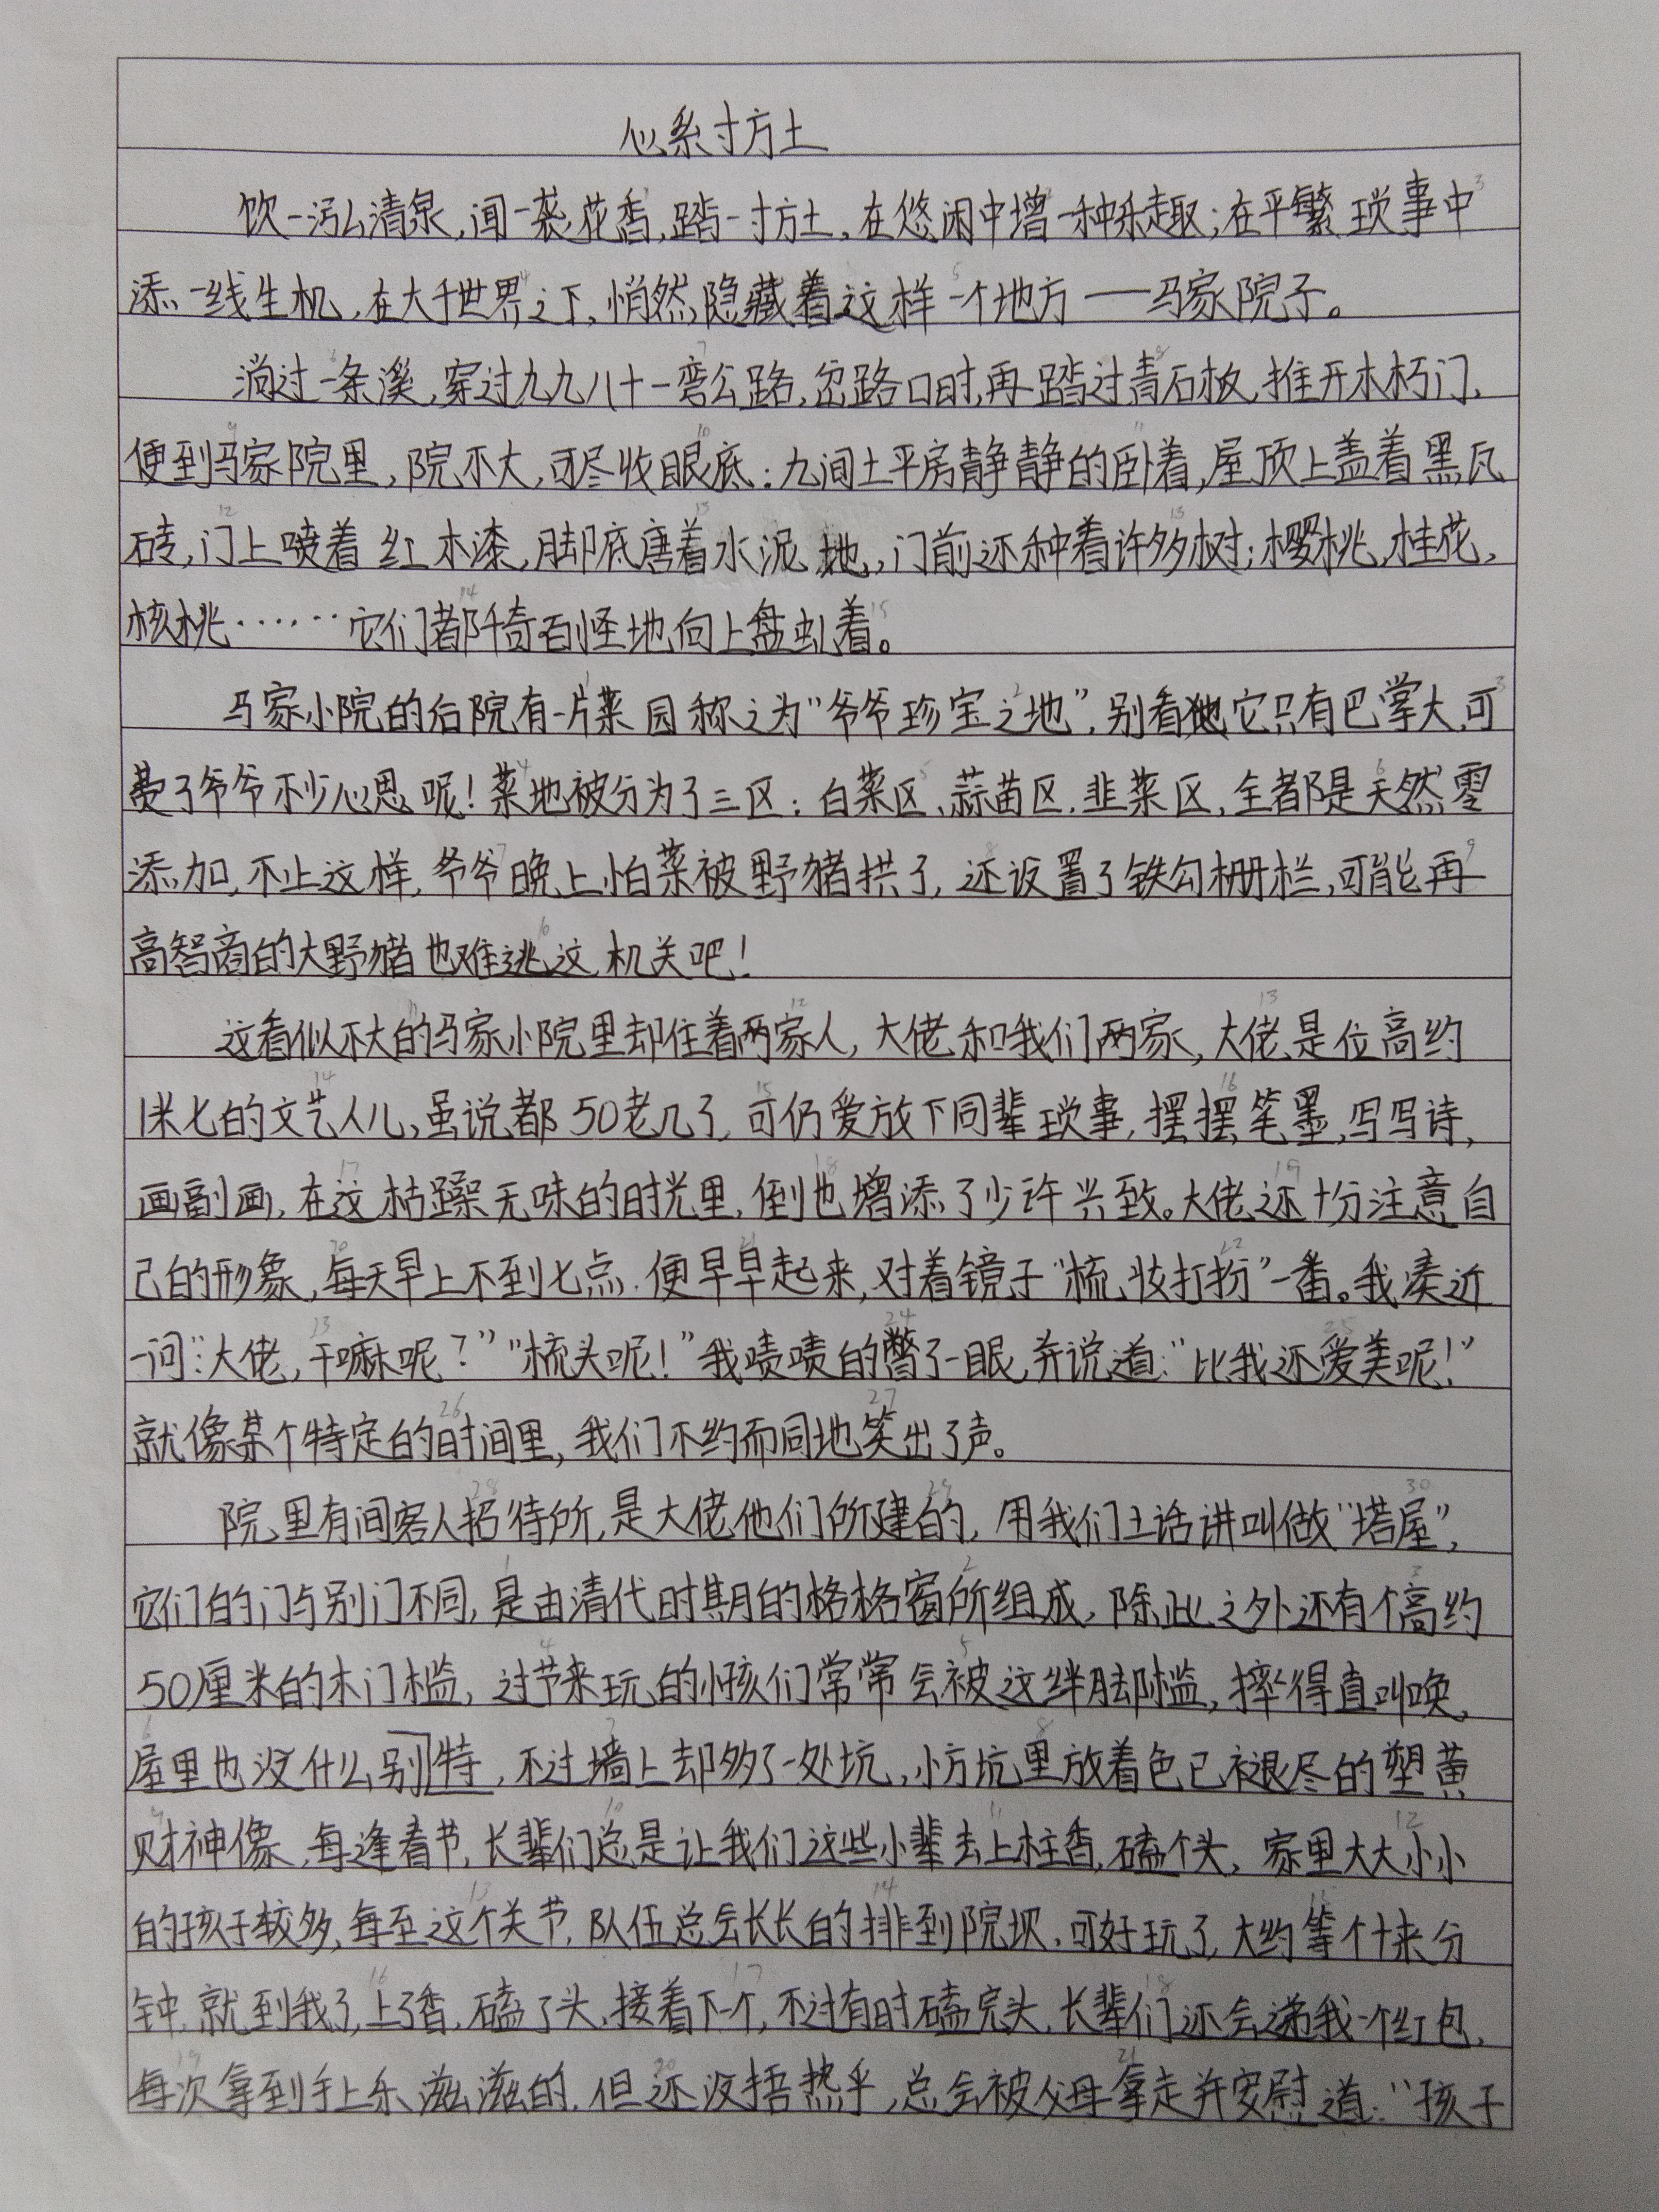 心系寸方土
饮一泓清泉,闻一袭花香,踏一寸方土,在悠闲中增一种乐趣;在平繁琐事中
添一线生机,在大千世界之下,悄然隐藏着这样一个地方——马家院子。
淌过一条溪,穿过九九八十一弯公路,岔路口时,再踏过青石板,推开木朽门,
便到马家院里,院不大,可尽收眼底:九间土平房静静的卧着,屋顶上盖着黑瓦
砖,门上喷着红木漆,脚底唐着水泥地,门前还种着许多树;樱桃,桂花,
核桃……它们都千奇百怪地向上盘虬着。
马家小院的后院有一片菜园称之为“爷爷珍宝之地”,别看它只有巴掌大,可
费了爷爷不少心思呢!菜地被分为了三区:白菜区、蒜苗区,韭菜区,全都是天然零
添加,不止这样,爷爷晚上怕菜被野猪拱了,还设置了铁勾栅栏,可能再
高智商的大野猪也难逃这机关吧!
这看似不大的马家小院里却住着两家人,大佬和我们两家,大佬是位高约
1米七的文艺人儿,虽说都50老几了,可仍爱放下同辈琐事,摆摆笔墨,写写诗,
画副画,在这枯躁无味的时光里,倒也增添了少许兴致。大佬还十分注意自
己的形象,每天早上不到七点,便早早起来,对着镜子“梳妆打扮”一番。我凑近
一问:“大佬,干嘛呢?”“梳头呢!”我啧啧的瞥了一眼,并说道:“比我还爱美呢!”
就像某个特定的时间里,我们不约而同地笑出了声。
院里有间客人招待所,是大佬他们所建的,用我们土话讲叫做“塔屋”,
它们的门与别门不同,是由清代时期的格格窗所组成,除此之外还有个高约
50厘米的木门槛,过节来玩的小孩们常常会被这绊脚槛,摔得直叫唤,
屋里也没什么别特,不过墙上却多了一处坑,小方坑里放着色已褪尽的塑黄
财神像,每逢春节,长辈们总是让我们这些小辈去上柱香,磕个头,家里大大小小
的孩子较多,每至这个关节,队伍总会长长的排到院坝,可好玩了,大约等个十来分
钟,就到我了,上了香,磕了头,接着下一个,不过有时磕完头,长辈们还会递我一个红包,
每次拿到手上乐滋滋的,但还没捂热乎,总会被父母拿走并安慰道:“孩子